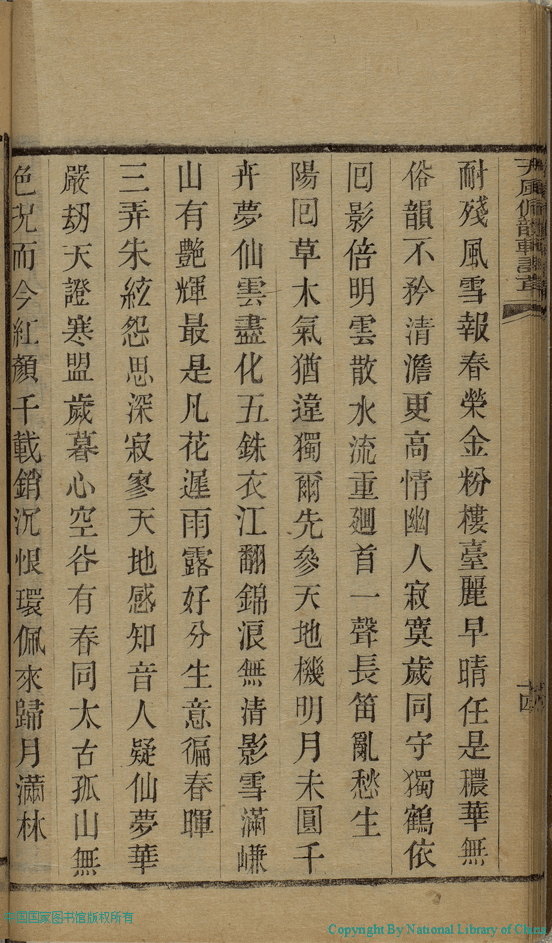 天風佩韻軒詩草
十四
耐殘風雪報春榮金粉樓臺麗早晴任是穠華無
俗韻不矜清澹更高情幽人寂寞歲同守獨鶴依
回影倍明雲散水流重廻首一聲長笛亂愁生
陽回草木氣猶違獨爾先參天地機明月未圓千
卉夢仙雲盡化五銖衣江翻錦浪無清影雪滿嵰
山有艷輝最是凡花遲雨露好分生意徧春暉
三弄朱絃怨思深寂寥天地感知音人疑仙夢華
嚴劫天證寒盟歲暮心空谷有春同太古孤山無
色況而今紅顏千載銷沉恨環佩來歸月滿林
中国国家图书馆版权所有
Copyright By National Library of China